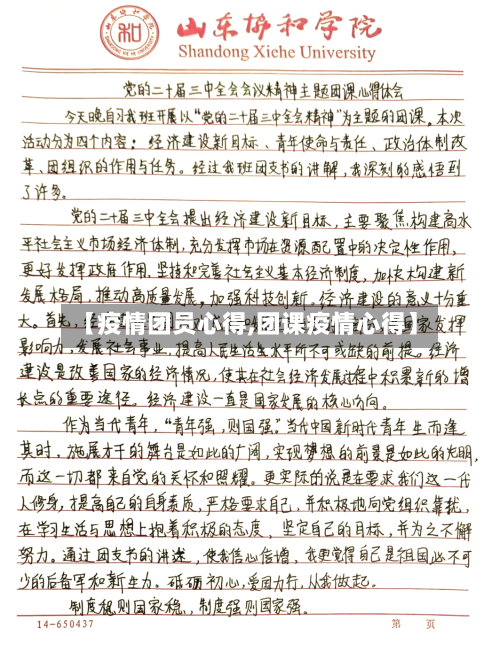 山东协和学院
Shandong Xiehe University
党的二十届三中全会会议精神主题团课心得体会
今天晚自习我班开展以“党的二十届三中全会精神”为主题的团课。本次
活动分为四个内容：经济建设新目标、青年使命与责任、政治体制改
革、团组织的作用与任务。经过我班团支书的讲解，我深刻的感悟到
了许多。
党的二十届三中全会提出经济建设新目标，主要聚焦构建高水
平社会主义市场经济体制，充分发挥市场在资源配置中的决定性作用，
更好发挥政府作用，坚持和完善社会主义基本经济制度，加快构建新
发展格局，推动高质量发展，加强科技创新。经济建设的意义十分重
大。首先，经
【疫情团员心得,团课疫情心得】
国家发挥
影响力，发展社会事业，提高人民生活水平所不可或缺的前提。经济
建设是改善国家的经济情况，使其在社会经济发展过程中积累新的增
长点的重要途径。经济建设一直是国家发展的核心方向。
作为当代青年，“青年强，则国强。”当代中国新时代青年生而逢
其时，施展才干的舞台是如此的广阔，实现梦想的前景是如此的光明，
而这一切都来自党的关怀和照耀。更实际的说是在要求我们这一代
人修身，提高自己的自身素质，严格要求自己，并积极地向党组织靠拢，
在学习生活与思想上抱着积极的态度，坚定自己的目标，并为之不懈
努力。通过团支书的讲述，使我信心倍增，我更觉得自己是祖国必不可
少的后备军和新生力。砥砺初心，爱国力行，从我做起。
制度稳则国家稳，制度强则国家强。
14-650437
第 页